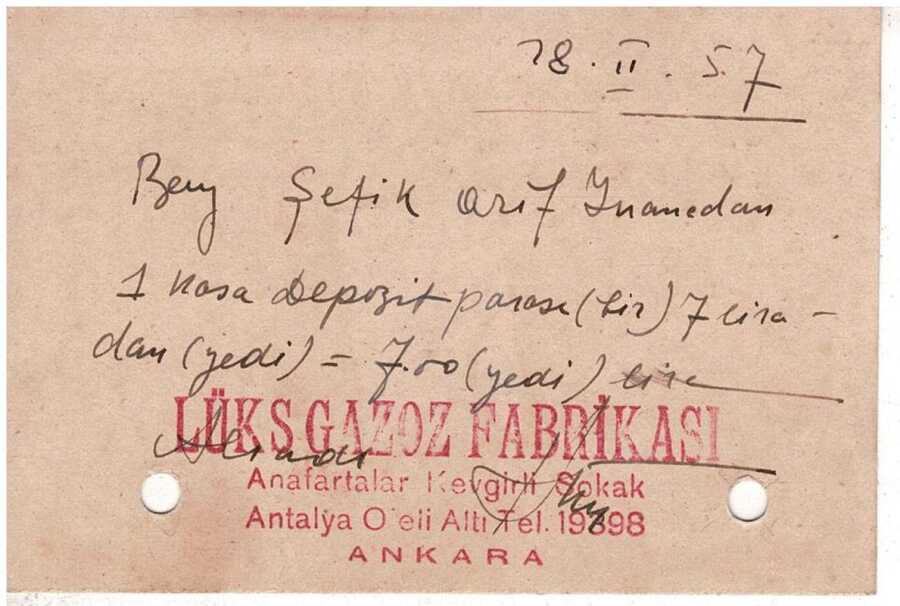 28.II.57
Bay Şefik Arif İnanedan
1 Kasa Depozit parası (bir) 7 lira-
dan (yedi) = 7.00 (yedi) lira
LÜKS GAZOZ FABRİKASI
Alındı
Anafartalar Kevgirli Sokak
Antalya Oteli Altı Tel. 19898
ANKARA